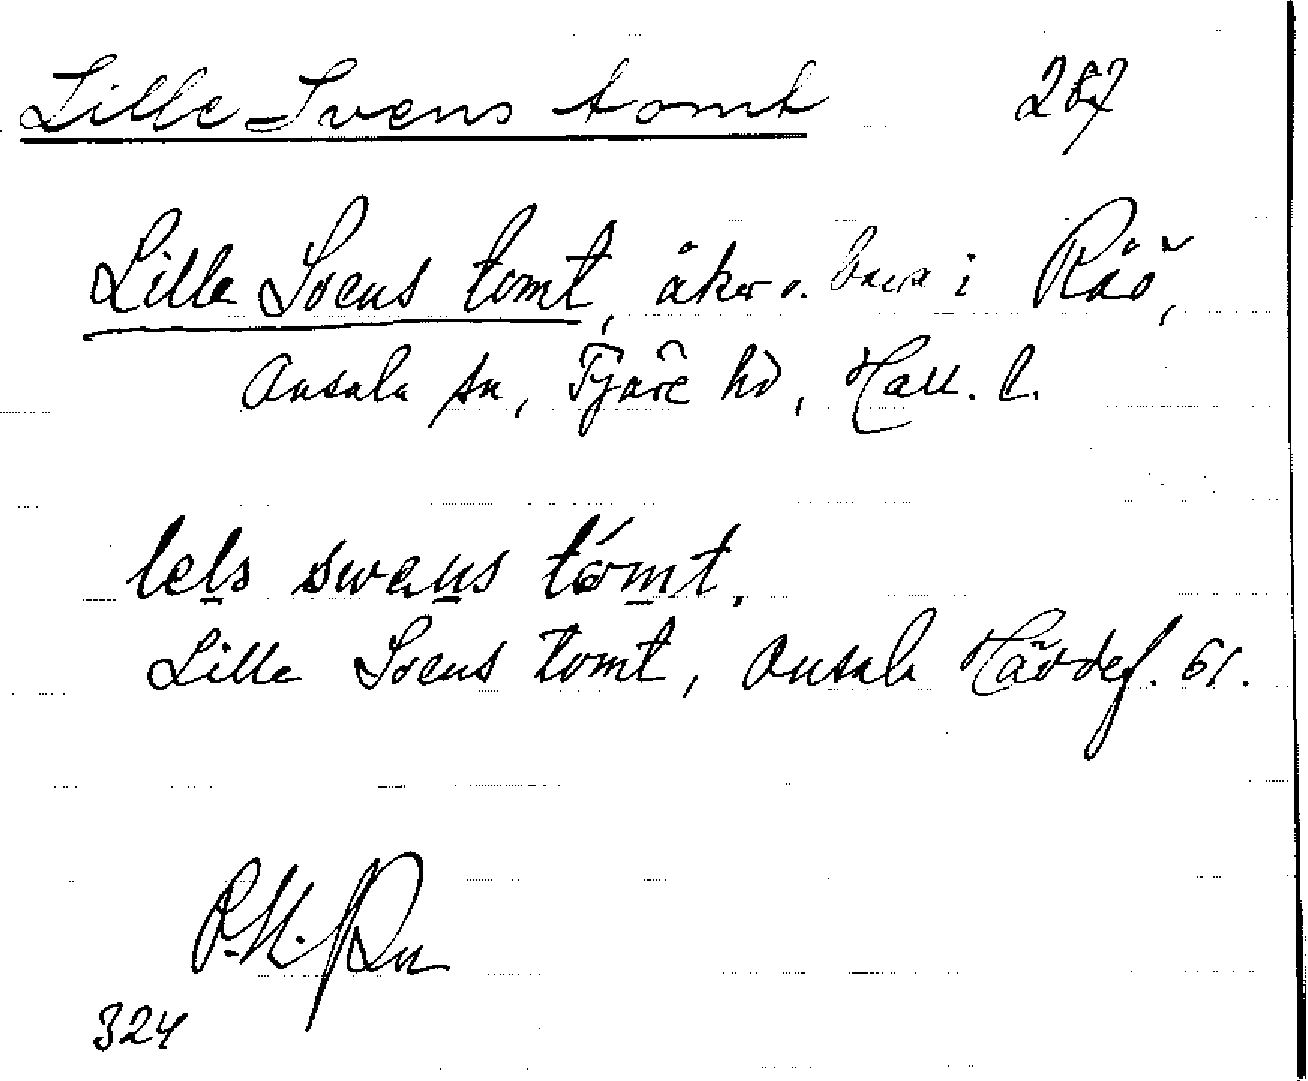 Lille Svens tomt 287
Lille Svens tomt, åker o. i Råö,
Onsala sn, Fjäre hd, Hall. l.
lels swens tomt.
Lille Svens tomt, Onsala Hävdef. 61.
324